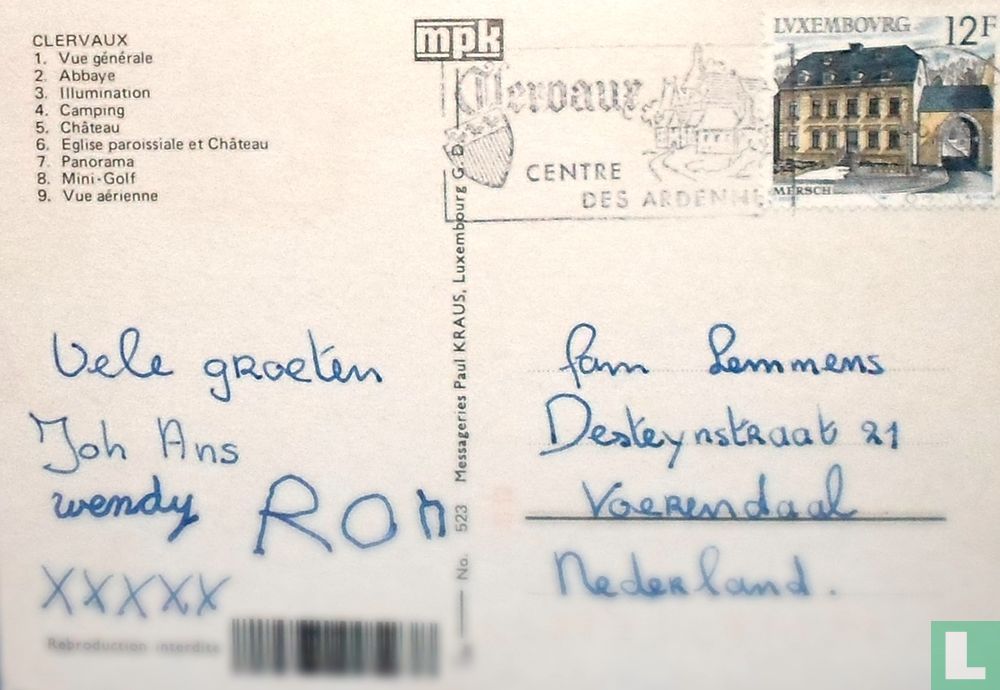 CLERVAUX
1. Vue générale
2. Abbaye
3. Illumination
4. Camping
5. Château
6. Eglise paroissiale et Château
7. Panorama
8. Mini-Golf
9. Vue aérienne
mpk
Clervaux
CENTRE
DES ARDENNE
LVXEMBOVRG 12F
MERSCH
No. 523 Messageries Paul KRAUS, Luxembourg G.D.
Vele groeten
Joh Ans
wendy RON
XXXXX
Reproduction interdite
fam Lemmens
Desteynstraat 21
Voerendaal
Nederland.
L